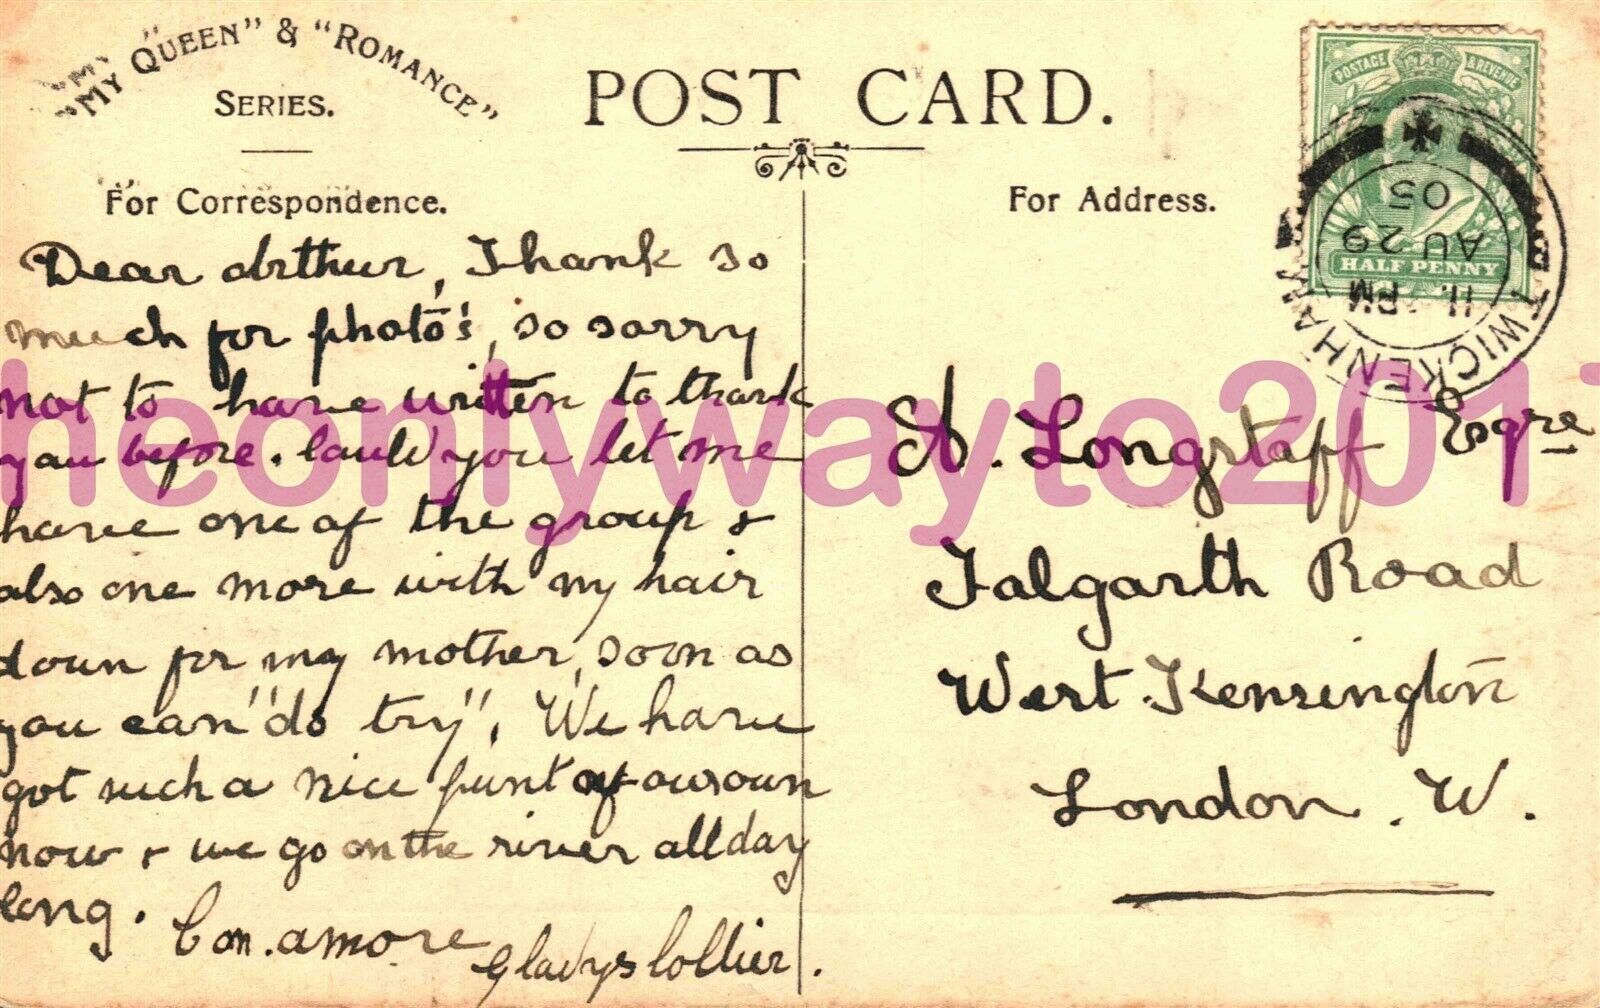 "MY QUEEN" & "ROMANCE"
SERIES.
POST CARD.
For Correspondence.
For Address.
POSTAGE & REVENUE
HALF PENNY
TWICKENHAM
11. PM
AU 29
05
Dear Arthur, Thank so
much for photo's, so sorry
not to have written to thank
you before. Could you let me
have one of the group &
also one more with my hair
down for my mother, soon as
you can "do try", We have
got such a nice punt of our own
now & we go on the river all day
long.
Con. amore
Gladys Collier.
A. Longstaff Esqre
Talgarth Road
West Kensington
London. W.
heonlywayto201